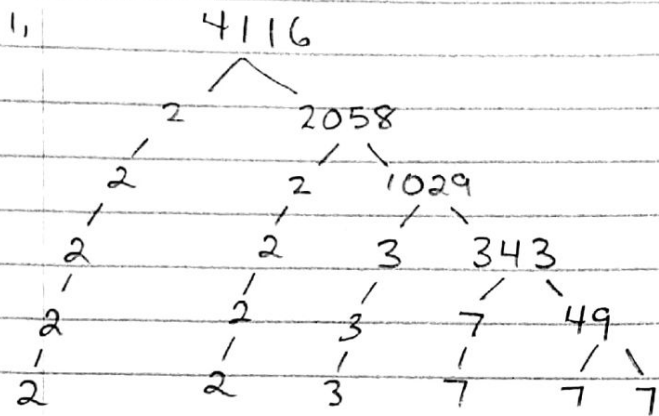 1, 4116
2 2058
2 2 1029
2 2 3 343
2 2 3 7 49
2 2 3 7 7 7